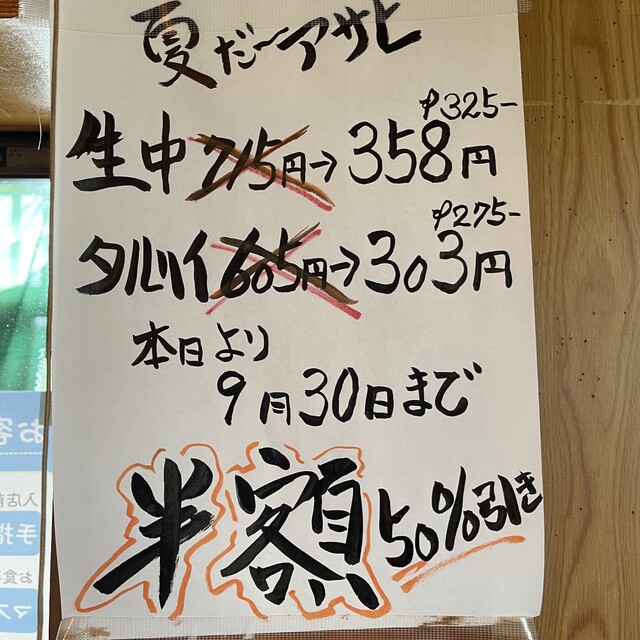 夏だ～アサヒ
₽325-
生中 715円→358円
₽275-
タルハイ 605円→303円
本日より
9月30日まで
半額 50%引き
お客
入店前
手指
お食事
マス